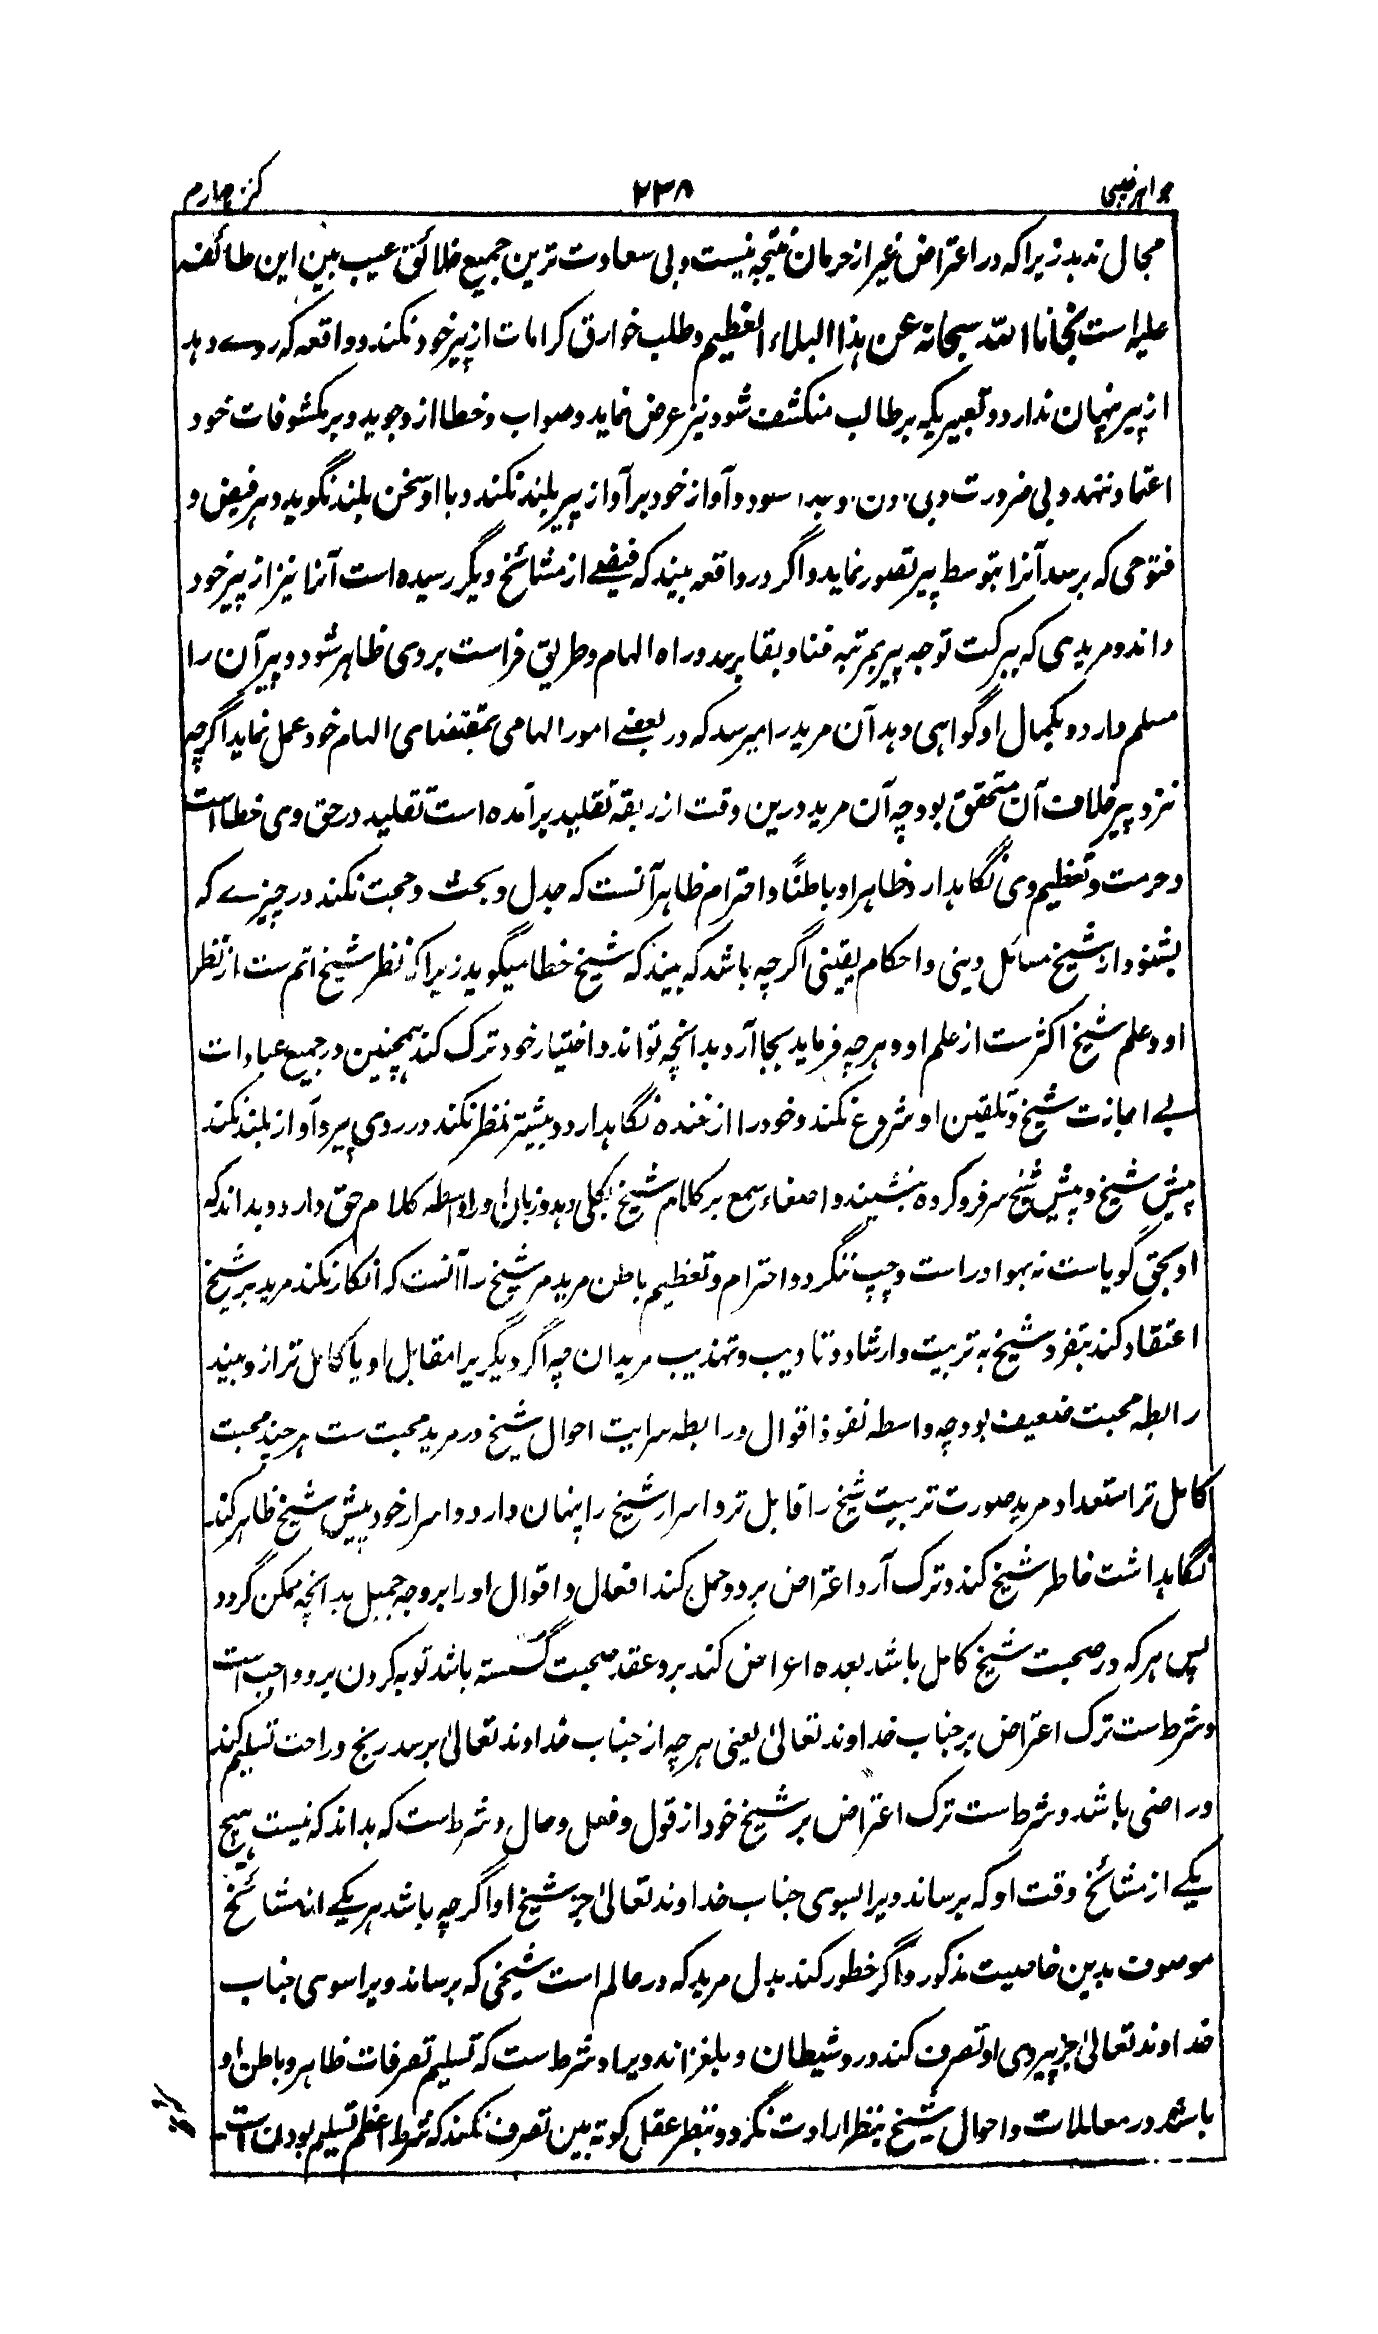 جواهر غیبی ۲۳۸ کنز چهارم
مجال ندهد زیرا که در اعتراض غیر از حرمان نتیجه نیست و بی سعادت ترین جمیع خلائق عیب بین این طائفه
علیه است نجانا الله سبحانه عن هذا البلاء العظیم و طلب خوارق کرامات از پیر خود نکند و واقعه که روے دهد
از پیر پنهان ندارد و تعبیریکه بر طالب منکشف شود نیز عرض نماید و صواب و خطا از و جوید و بر مکشوفات خود
اعتماد ننهد و بی ضرورت و بی و آواز خود بر آواز پیر بلند نکند و با او سخن بلند نگوید و هر فیض و
فتوحی که برسد آنرا بتوسط پیر تصور نماید و اگر در واقعه بیند که فیضے از مشائخ دیگر رسیده است آنرا نیز از پیر خود
داند و مریدی که ببرکت توجه پیر بمرتبه فنا و بقا برسد و راه الهام و طریق فراست بر وی ظاهر شود و پیر آن را
مسلم دارد و بکمال او گواهی دهد آن مرید را میرسد که در بعضے امور الهامی بمقتضای الهام خود عمل نماید اگرچه
نزد پیر خلاف آن متحقق بود چه آن مرید درین وقت از ربقه تقلید برآمده است تقلید در حق وی خطا است
و حرمت و تعظیم وی نگاهدارد ظاهرا و باطناً و احترام ظاهر آنست که جدل و بحث و حجت نکند در چیزے که
بشنود از شیخ مسائل دینی و احکام یقینی اگرچه باشد که بیند که شیخ خطا میگوید زیرا که نظر شیخ اتم ست از نظر
او و علم شیخ اکثر ست از علم او و هر چه فرماید بجا آرد بدانچه تواند و اختیار خود ترک کند همچنین در جمیع عبادات
بے اجازت شیخ و تلقین او شروع نکند و خود را از خنده نگاهدارد و بیشتر نظر نکند در روی پیر و آواز بلند نکند
پیش شیخ و پیش شیخ سر فرو کرده بنشیند و اصغاء سمع بر کلام شیخ بکلی دهد و زبان او را واسطه کلام حق دارد و بداند که
او بحق گویاست نه بهوا و راست و چپ ننگرد و احترام و تعظیم باطن مرید مر شیخ را آنست که انکار نکند مرید بر شیخ
اعتقاد کند بتفرد شیخ به تربیت و ارشاد و تادیب و تهذیب مریدان چه اگر دیگریرا مقابل او یا کامل تر از و بیند
رابطه محبت ضعیف بود چه واسطه نفوذ اقوال و رابطه سرایت احوال شیخ در مرید محبت ست هر چند محبت
کامل تر استعداد مرید صورت تربیت شیخ را قابل تر و اسرار شیخ را پنهان دارد و اسرار خود پیش شیخ ظاهر کند
نگاهداشت خاطر شیخ کند و ترک آرد اعتراض برو و حمل کند افعال و اقوال او را بر وجه جمیل بدانچه ممکن گردد
پس هر که در صحبت شیخ کامل باشد بعده اعراض کند برو عقد صحبت گسسته باشد توبه کردن برو واجب است
و شرط ست ترک اعتراض بر جناب خداوند تعالیٰ یعنی هر چه از جناب خداوند تعالیٰ برسد رنج و راحت تسلیم کند
و راضی باشد و شرط ست ترک اعتراض بر شیخ خود از قول و فعل و حال و شرط ست که بداند که نیست هیچ
یکے از مشائخ وقت او که برساند ویرا بسوی جناب خداوند تعالیٰ جز شیخ او اگرچه باشد هر یکے از مشائخ
موصوف بدین خاصیت مذکور و اگر خطور کند بدل مرید که در عالم است شیخی که برساند ویرا سوی جناب
خداوند تعالیٰ جز پیر وی او تصرف کند درو شیطان و بلغزاند ویرا و شرط ست که تسلیم تصرفات ظاهر و باطن او
باشد و در معاملات و احوال شیخ بنظر ارادت نگرد و بنظر عقل کوته بین تصرف نکند که شرط اعظم تسلیم بودن است